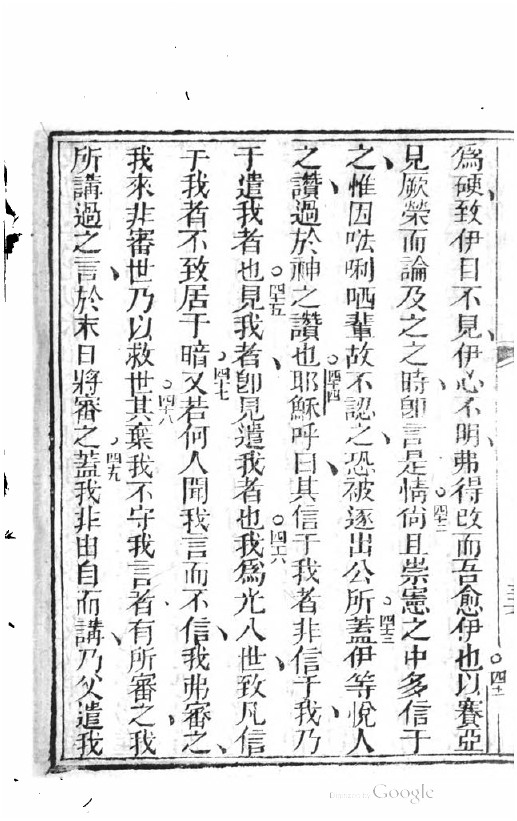 為硬致伊目不見伊心不明弗得改而吾愈伊也以賽亞
四十一
見厥榮而論及之之時卽言是情尙且崇憲之中多信于
四十二
之惟因𠵽唎哂輩故不認之恐被逐出公所蓋伊等悅人
四十三
之讚過於神之讚也耶穌呼曰其信于我者非信于我乃
四十四
于遣我者也見我者卽見遣我者也我為光入世致凡信
四十五
四十六
于我者不致居于暗又若何人聞我言而不信我弗審之
四十七
我來非審世乃以救世其棄我不守我言者有所審之我
四十八
所講過之言於末日將審之蓋我非由自而講乃父遣我
四十九
Digitized by Google